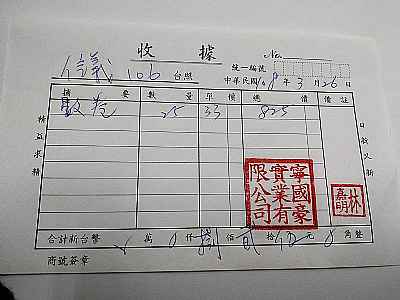 收據
No.
信義106 台照
統一編號
中華民國108年3月26日
摘要 數量 單價 總價 備註
25 33 825
精益求精
日新又新
寧國豪實業有限公司
林
合計新台幣 萬 0 仟 捌 佰 貳 拾 伍 元 0 角整
商號簽章